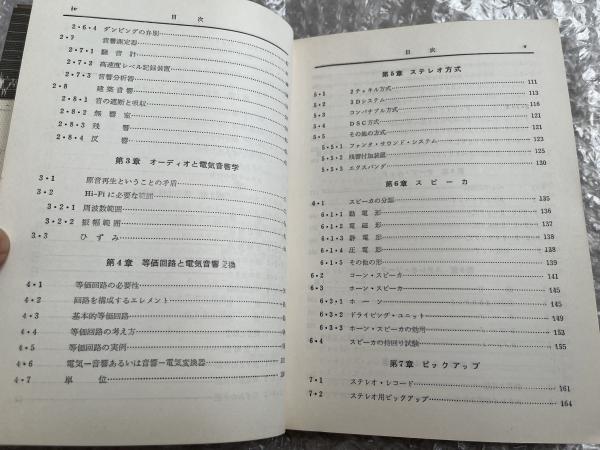 iv 目次
2・6・4 ダンピングの弁別
2・7 音響測定器
2・7・1 騒音計
2・7・2 高速度レベル記録装置
2・7・3 音響分析器
2・8 建築音響
2・8・1 音の遮断と吸収
2・8・2 無響室
2・8・3 残響
2・8・4 反響
第3章 オーディオと電気音響学
3・1 原音再生ということの矛盾
3・2 Hi-Fiに必要な範囲
3・2・1 周波数範囲
3・2・2 振幅範囲
3・3 ひずみ
第4章 等価回路と電気音響変換
4・1 等価回路の必要性
4・2 回路を構成するエレメント
4・3 基本的等価回路
4・4 等価回路の考え方
4・5 等価回路の実例
4・6 電気―音響あるいは音響―電気変換器
4・7 単位
目次 v
第5章 ステレオ方式
5・1 2チャネル方式 111
5・2 3Dシステム 113
5・3 コンパチブル方式 116
5・4 DSC方式 121
5・5 その他の方式 123
5・5・1 ファンタ・サウンド・システム 123
5・5・2 残響付加装置 125
5・5・3 エクスパンダ 130
第6章 スピーカ
4・1 スピーカの分類 135
6・1・1 動電形 136
6・1・2 電磁形 137
6・1・3 静電形 138
6・1・4 圧電形 139
6・1・5 その他の形 139
6・2 コーン・スピーカ 141
6・3 ホーン・スピーカ 145
6・3・1 ホーン 145
6・3・2 ドライビング・ユニット 149
6・3・3 ホーン・スピーカの効用 153
6・4 スピーカの特回り試験 155
第7章 ピックアップ
7・1 ステレオ・レコード 161
7・2 ステレオ用ピックアップ 164